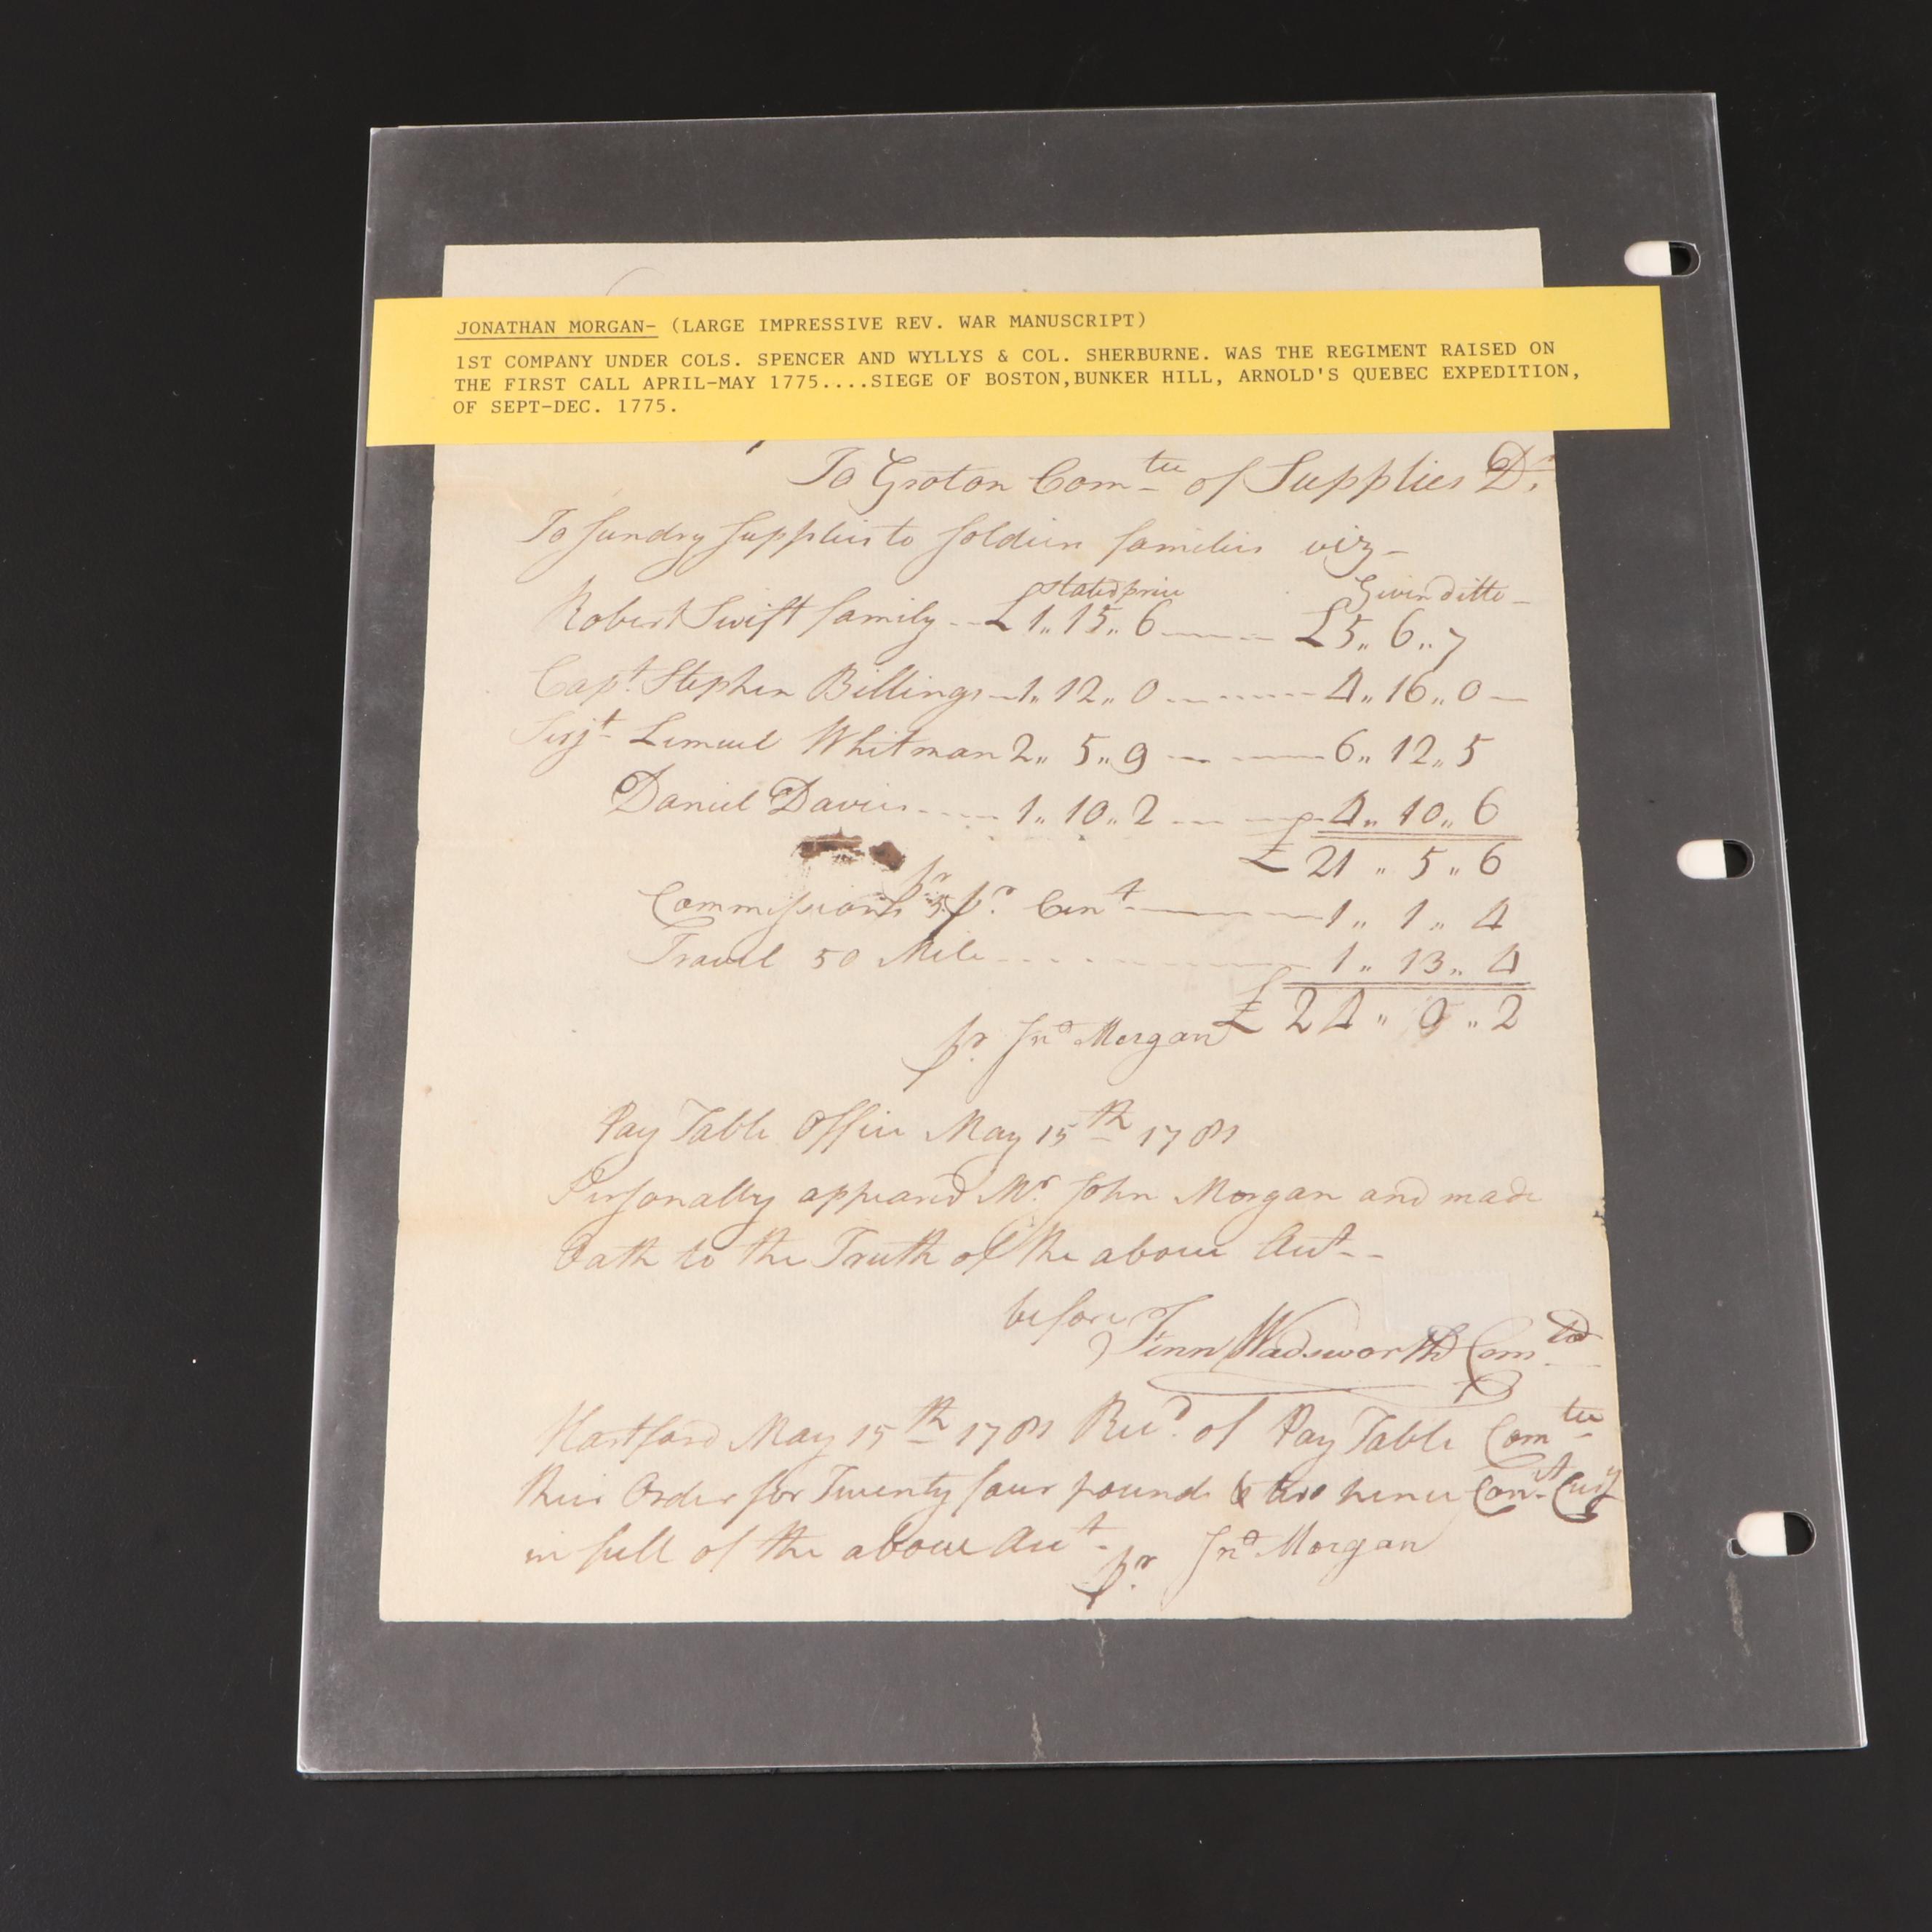 JONATHAN MORGAN- (LARGE IMPRESSIVE REV. WAR MANUSCRIPT)
1ST COMPANY UNDER COLS. SPENCER AND WYLLYS & COL. SHERBURNE. WAS THE REGIMENT RAISED ON
THE FIRST CALL APRIL-MAY 1775....SIEGE OF BOSTON,BUNKER HILL, ARNOLD'S QUEBEC EXPEDITION,
OF SEPT-DEC. 1775.
To Groton Com^tee of Supplies D^r.
To Sundry Supplies to Soldiers families viz-
Stated price Given ditto-
Robert Swift family--£1,,15,,6------£5,,6,,7
Cap^t. Stephen Billings--1,,12,,0------4,,16,,0-
Serj^t Lemuel Whitman 2,,5,,9------6,,12,,5
Daniel Davis----1,,10,,2------4,,10,,6
£21,,5,,6
Commissions 5 p^r. Cent------1,,1,,4
Travel 50 Mile------1,,13,,4
p^r. Jn^o Morgan £24,,0,,2
Pay Table Office May 15^th 1781
Personally appeared M^r. John Morgan and made
Oath to the Truth of the above Acct--
before Fenn Wadsworth Com^tee
Hartford May 15^th 1781 Rec^d. of Pay Table Com^tee
their Order for Twenty four pounds & two pence Con^t Curr^y
in full of the above Acc^t-
p^r. Jn^o Morgan